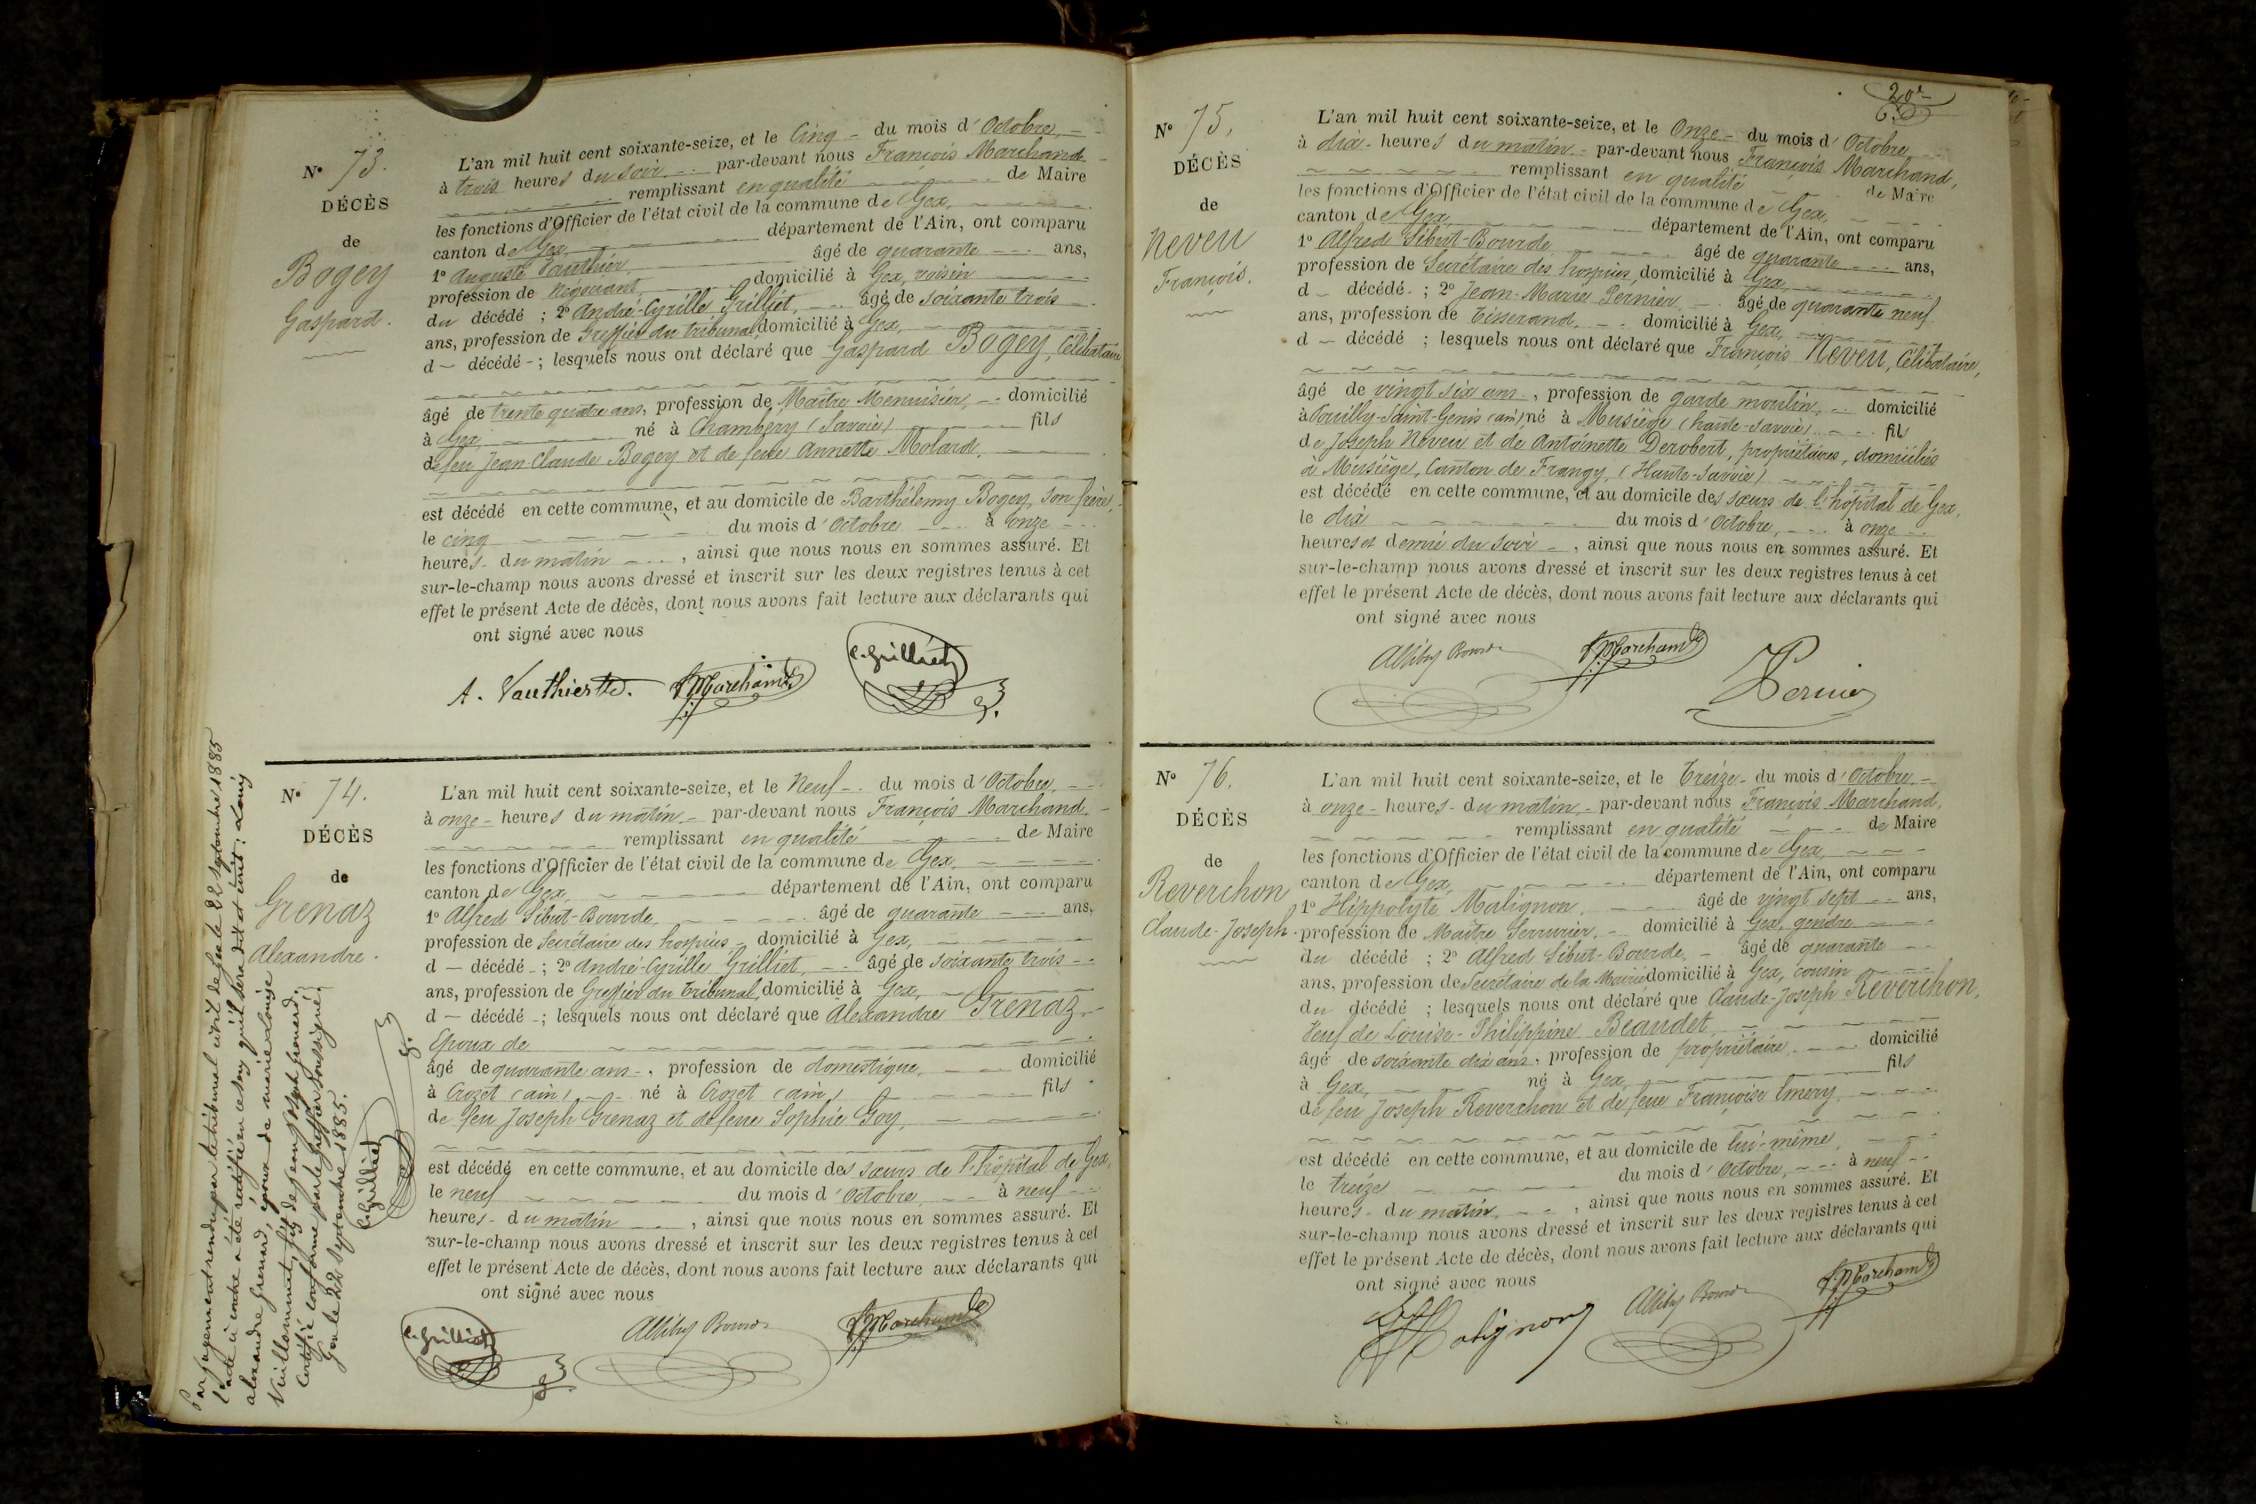 N° 73.
DÉCÈS
de
Bogey
Gaspard.
L'an mil huit cent soixante-seize, et le Cinq du mois d'Octobre,
à trois heures du soir par-devant nous François Marchand
remplissant en qualité de Maire
les fonctions d'Officier de l'état civil de la commune de Gex,
canton de Gex, département de l'Ain, ont comparu
1° Auguste Vauthier, âgé de quarante ans,
profession de Négociant, domicilié à Gex, voisin
du décédé ; 2° André-Cyrille Grilliet, âgé de soixante trois
ans, profession de Greffier du tribunal, domicilié à Gex,
d décédé ; lesquels nous ont déclaré que Gaspard Bogey, Célibataire
âgé de trente quatre ans, profession de Maître Menuisier, domicilié
à Gex, né à Chambéry (Savoie) fils
de feu Jean-Claude Bogey et de feue Annette Molard,
est décédé en cette commune, et au domicile de Barthélemy Bogey, son frère,
le cinq du mois d'Octobre à onze
heures du matin, ainsi que nous nous en sommes assuré. Et
sur-le-champ nous avons dressé et inscrit sur les deux registres tenus à cet
effet le présent Acte de décès, dont nous avons fait lecture aux déclarants qui
ont signé avec nous
A. Vauthier
F. Marchand
C. Grilliet
N° 74.
DÉCÈS
de
Grenaz
Alexandre.
L'an mil huit cent soixante-seize, et le Neuf du mois d'Octobre,
à onze heures du matin, par-devant nous François Marchand,
remplissant en qualité de Maire
les fonctions d'Officier de l'état civil de la commune de Gex,
canton de Gex, département de l'Ain, ont comparu
1° Alfred Sibut-Bourde, âgé de quarante ans,
profession de Secrétaire des hospices domicilié à Gex,
d décédé ; 2° André-Cyrille Grilliet, âgé de soixante trois
ans, profession de Greffier du tribunal, domicilié à Gex,
d décédé ; lesquels nous ont déclaré que Alexandre Grenaz
Epoux de
âgé de quarante ans, profession de domestique, domicilié
à Crozet (ain) né à Crozet (ain) fils
de feu Joseph Grenaz et de feue Sophie Goy,
est décédé en cette commune, et au domicile des sœurs de l'hôpital de Gex,
le neuf du mois d'Octobre à neuf
heures du matin, ainsi que nous nous en sommes assuré. Et
sur-le-champ nous avons dressé et inscrit sur les deux registres tenus à cet
effet le présent Acte de décès, dont nous avons fait lecture aux déclarants qui
ont signé avec nous
C. Grilliet
A Sibut Bourde
F. Marchand
Par jugement rendu par le tribunal civil de Gex le 22 septembre 1885
l'acte ci contre a été rectifié en ce sens qu'il sera dit et écrit: Louis
alexandre grenard, époux de marie Louise
Vuillommet, fils de Jean Joseph grenard.
Certifié conforme par le greffier soussigné.
Gex le 22 Septembre 1885.
C. Grilliet
20e
N° 75.
DÉCÈS
de
Neveu
François.
L'an mil huit cent soixante-seize, et le Onze du mois d'Octobre
à dix heures du matin par-devant nous François Marchand,
remplissant en qualité de Maire
les fonctions d'Officier de l'état civil de la commune de Gex,
canton de Gex, département de l'Ain, ont comparu
1° Alfred Sibut-Bourde âgé de quarante ans,
profession de Secrétaire des hospices, domicilié à Gex,
d décédé ; 2° Jean-Marie Pernier, âgé de quarante neuf
ans, profession de Tisserand, domicilié à Gex,
d décédé ; lesquels nous ont déclaré que François Neveu, Célibataire,
âgé de vingt six ans, profession de garde moulin, domicilié
à Pouilly-Saint-Genis (ain) né à Musiège (haute-savoie) fils
de Joseph Neveu et de Antoinette Derobert, propriétaires, domiciliés
à Musiège, Canton de Frangy, (Haute-Savoie)
est décédé en cette commune, et au domicile des sœurs de l'hôpital de Gex,
le dix du mois d'Octobre, à onze
heures et demie du soir, ainsi que nous nous en sommes assuré. Et
sur-le-champ nous avons dressé et inscrit sur les deux registres tenus à cet
effet le présent Acte de décès, dont nous avons fait lecture aux déclarants qui
ont signé avec nous
A Sibut Bourde
F. Marchand
Pernier
N° 76.
DÉCÈS
de
Reverchon
Claude-Joseph.
L'an mil huit cent soixante-seize, et le Treize du mois d'Octobre
à onze heures du matin, par-devant nous François Marchand,
remplissant en qualité de Maire
les fonctions d'Officier de l'état civil de la commune de Gex,
canton de Gex, département de l'Ain, ont comparu
1° Hippolyte Matignon, âgé de vingt sept ans,
profession de Maître Serrurier, domicilié à Gex, gendre
du décédé ; 2° Alfred Sibut-Bourde, âgé de quarante
ans, profession de Secrétaire de la Mairie domicilié à Gex, cousin
du décédé ; lesquels nous ont déclaré que Claude-Joseph Reverchon,
Veuf de Louise-Philippine Beaudet,
âgé de soixante dix ans, profession de propriétaire, domicilié
à Gex, né à Gex, fils
de feu Joseph Reverchon et de feue Françoise Emery,
est décédé en cette commune, et au domicile de lui-même,
le treize du mois d'Octobre, à neuf
heures du matin, ainsi que nous nous en sommes assuré. Et
sur-le-champ nous avons dressé et inscrit sur les deux registres tenus à cet
effet le présent Acte de décès, dont nous avons fait lecture aux déclarants qui
ont signé avec nous
Matignon
A Sibut Bourde
F. Marchand